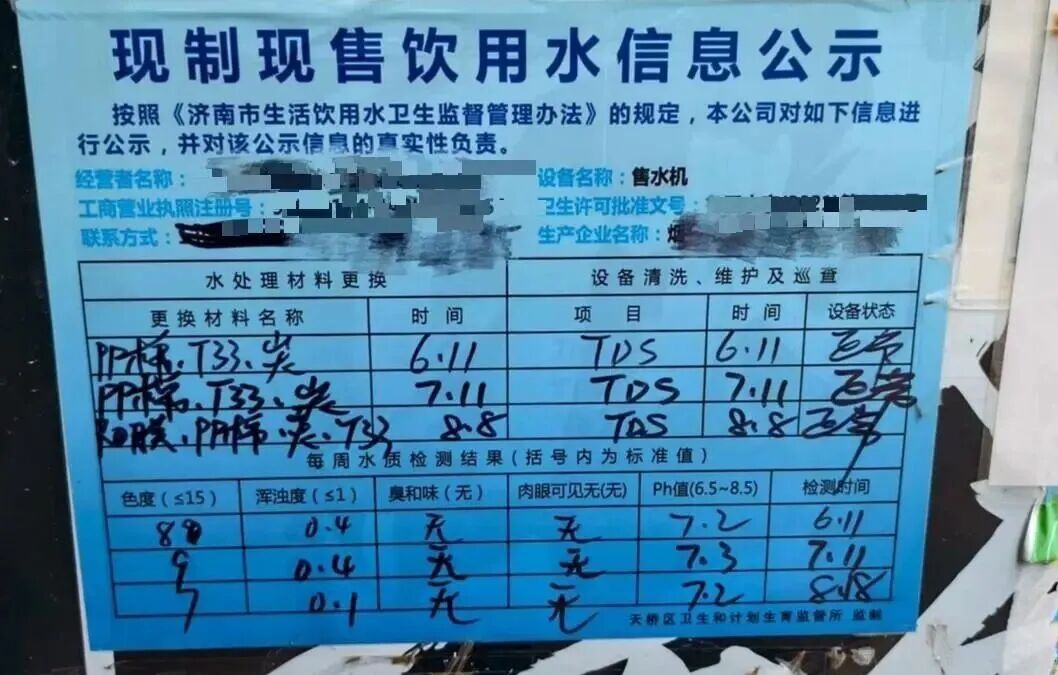 现制现售饮用水信息公示
按照《济南市生活饮用水卫生监督管理办法》的规定，本公司对如下信息进
行公示，并对该公示信息的真实性负责。
经营者名称： 设备名称：售水机
工商营业执照注册号： 卫生许可批准文号：
联系方式： 生产企业名称：
水处理材料更换 设备清洗、维护及巡查
更换材料名称 时间 项目 时间 设备状态
PP棉、T33、炭 6.11 TDS 6.11 正常
PP棉、T33、炭 7.11 TDS 7.11 正常
膜、PP棉、炭、T33 8.8 TDS 8.8 正常
每周水质检测结果(括号内为标准值)
色度（≤15） 浑浊度（≤1） 臭和味（无） 肉眼可见无(无) Ph值(6.5~8.5) 检测时间
8 0.4 无 无 7.2 6.11
9 0.4 无 无 7.3 7.11
7 0.1 无 无 7.2 8.8
天桥区卫生和计划生育监督所 监制